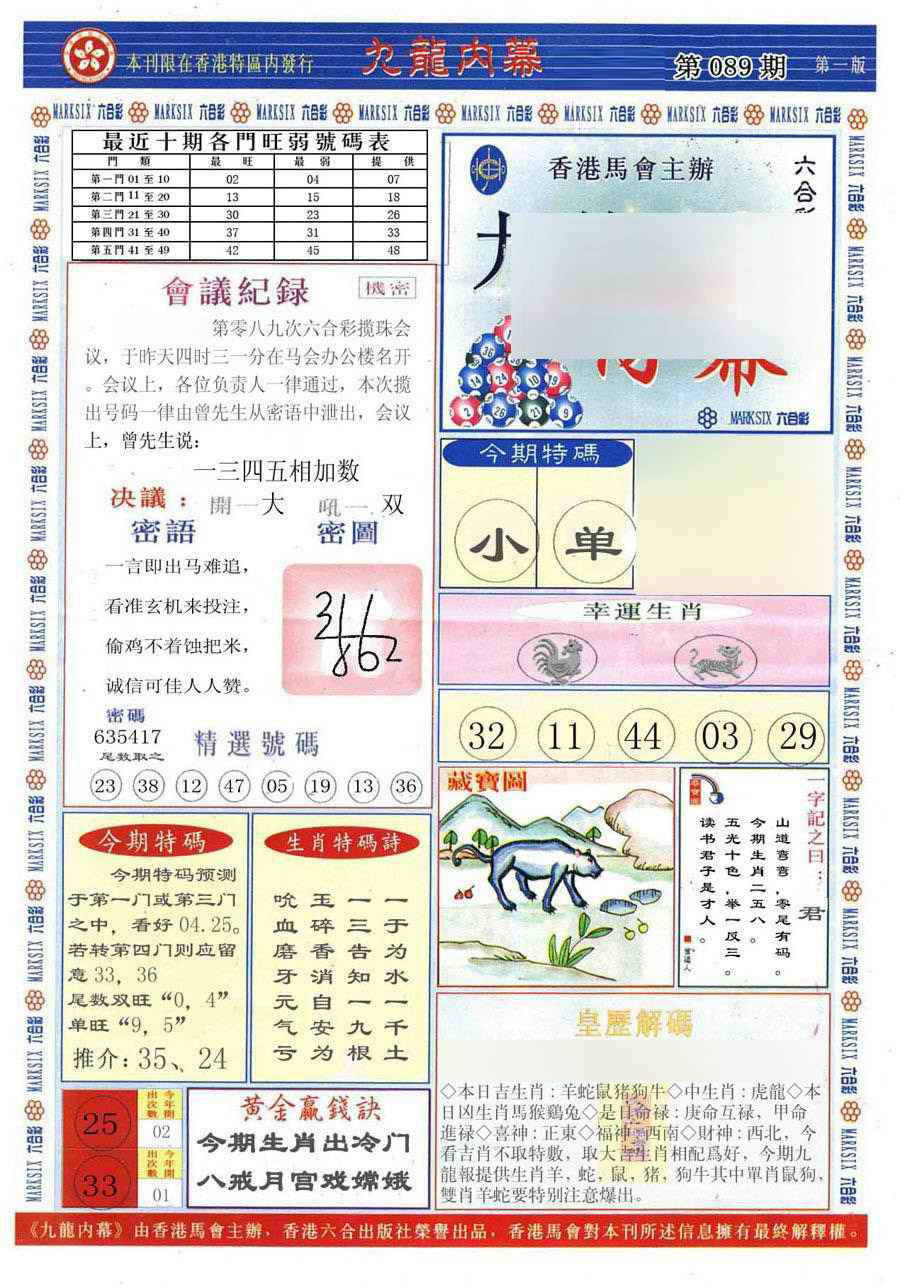 本刊限在香港特區内發行
九龍内幕
第 089 期
第一版
MARKSIX 六合彩
最近十期各門旺弱號碼表
門 類 最 旺 最 弱 提 供
第一門 01 至 10 02 04 07
第二門 11 至 20 13 15 18
第三門 21 至 30 30 23 26
第四門 31 至 40 37 31 33
第五門 41 至 49 42 45 48
會議紀録
機密
第零八九次六合彩揽珠会
议，于昨天四时三一分在马会办公楼名开
。会议上，各位负责人一律通过，本次揽
出号码一律由曾先生从密语中泄出，会议
上，曾先生说：
一三四五相加数
决議：開一大 吼一 双
密語
一言即出马难追，
看准玄机来投注，
偷鸡不着蚀把米，
诚信可佳人人赞。
密圖
密碼
635417
尾数取之
精選號碼
23 38 12 47 05 19 13 36
香港馬會主辦
六合彩
九
内幕
36
14 24 10 19
2 26 21 9
MARKSIX 六合彩
今期特碼
小 单
幸運生肖
32 11 44 03 29
藏寶圖
一字記之曰：君
山道弯弯,零尾有码。
今期生肖二五八。
五光十色,举一反三。
读书君子是才人。
今期特碼
今期特码预测
于第一门或第三门
之中，看好 04.25。
若转第四门则应留
意 33，36
尾数双旺“0，4”
单旺“9，5”
推介：35、24
生肖特碼詩
一于为水一千土
一三告知一九根
玉碎香消自安为
吮血磨牙元气亏
25
今年開出次數
02
33
今年開出次數
01
黄金贏錢訣
今期生肖出冷门
八戒月宫戏嫦娥
皇歷解碼
◇本日吉生肖：羊蛇鼠猪狗牛◇中生肖：虎龍◇本
日凶生肖馬猴鷄兔◇是日命禄：庚命互禄，甲命
進禄◇喜神：正東◇福神：西南◇財神：西北，今
看吉肖不取特數，取大吉生肖相配爲好，今期九
龍報提供生肖羊，蛇，鼠，猪，狗牛其中單肖鼠狗，
雙肖羊蛇要特别注意爆出。
《九龍内幕》由香港馬會主辦，香港六合出版社榮譽出品，香港馬會對本刊所述信息擁有最終解釋權。